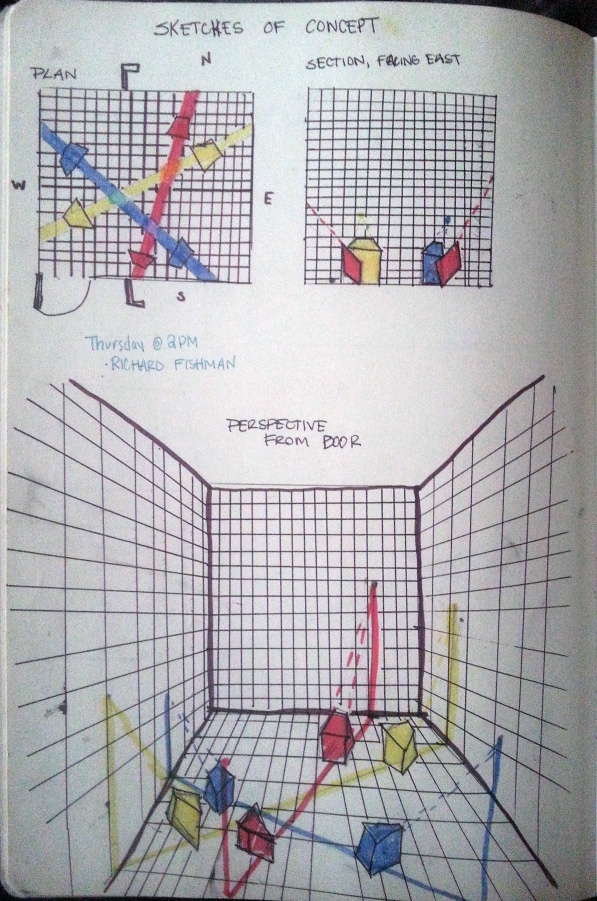 SKETCHES OF CONCEPT
N
PLAN
SECTION, FACING EAST
W
E
S
Thursday @ 2PM
· RICHARD FISHMAN
PERSPECTIVE
FROM DOOR